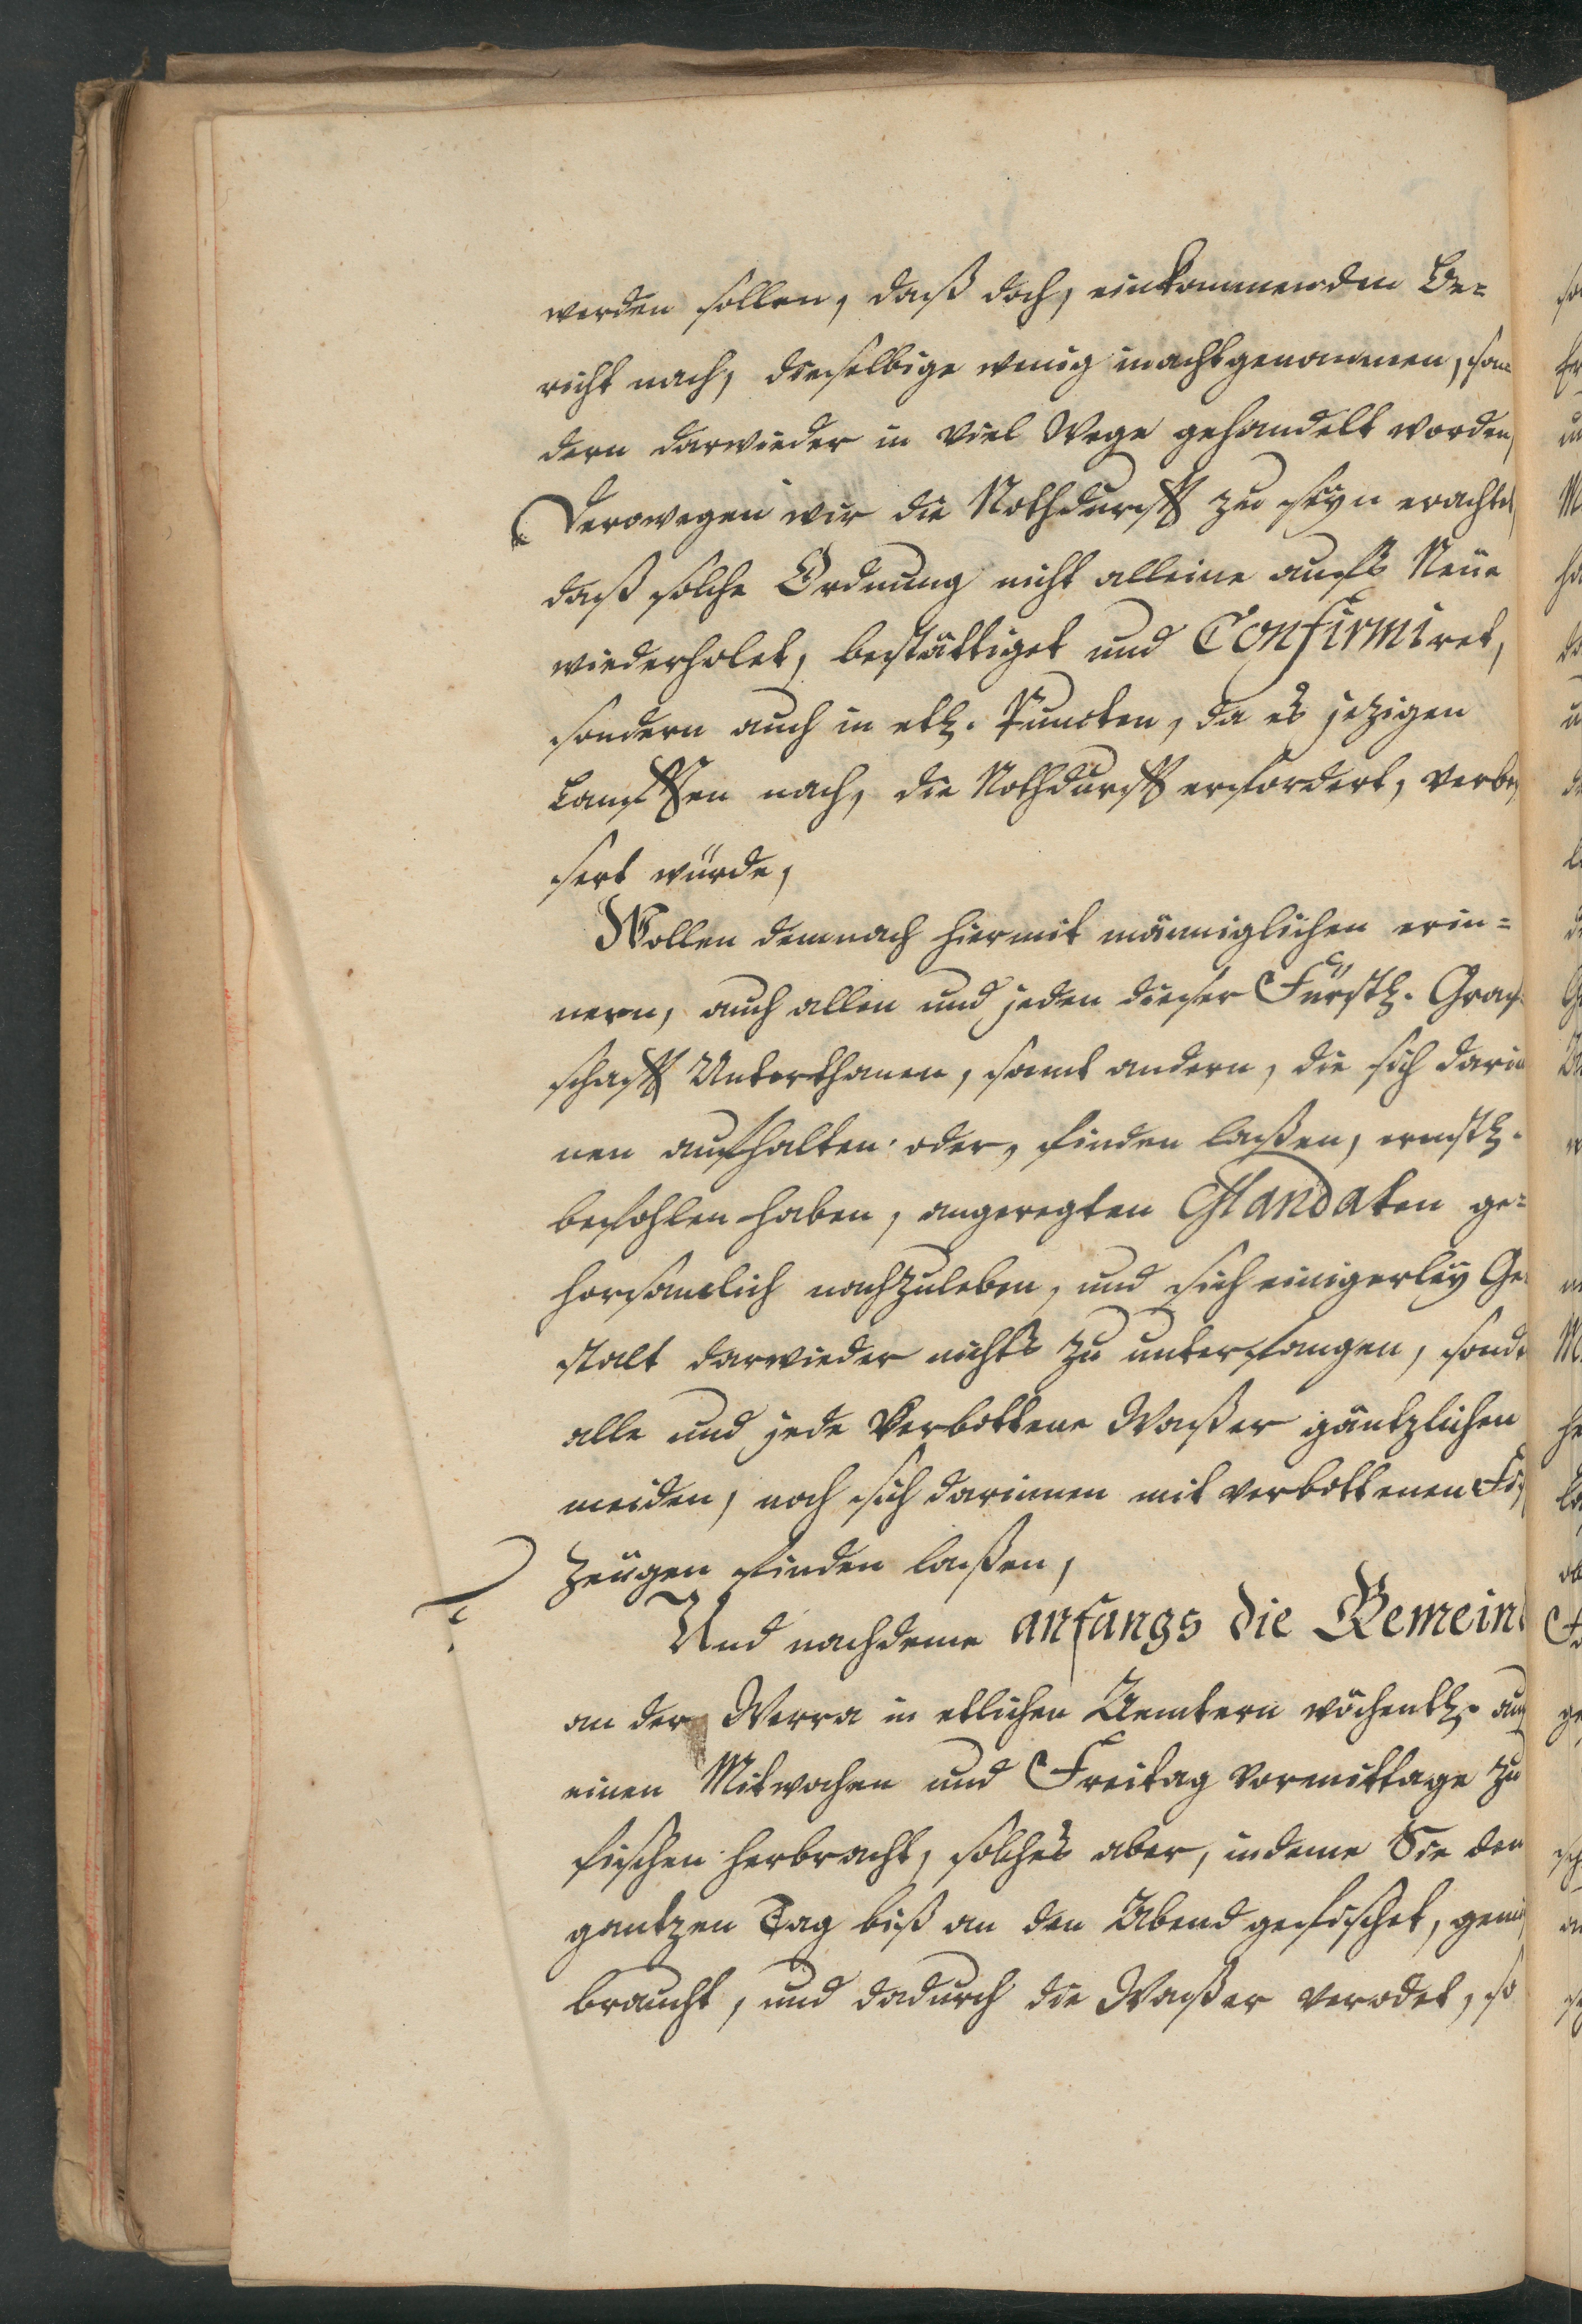 werden sollen, daß doch, einkommenden Be-
richt nach, dieselbige wenig inachtgenommen, son
dern darwieder in viel Wege gehandelt worden,
Derowegen wir die Nothdurfft zu seyn erachtet
daß solche Ordnung nicht alleine auffs Neüe
wiederholet, bestättiget und Confirmiret,
sondern auch in etl. Puncten, da es jezigen
Laufften nach, die Nothdurfft erfordert, verbes
sert würde,
Wollen demnach hiermit männiglichen erin-
nern, auch allen und jeden dieser Fürstl. Graf
schafft Unterthanen, samt andern, die sich darin
nen aufhalten oder, finden laßen, ernstl.
befohlen haben, angeregten Mandaten ge-
horsamlich nachzuleben, und sich einigerley Ge
stalt darwieder nichts zu unterfangen, sonde
alle und jede Verbottene Waßer gäntzlichen
meiden, noch sich darinnen mit verbottenen Fi
Zeügen finden laßen,
Und nachdeme anfangs die Gemein
an der Werra in etlichen Aemtern wöchentl. auf
einen Mitwochen und Freitag vormittage zu
fischen herbracht, solches aber, indeme Sie den
gantzen Tag biß an den Abend gefischet, gemi
braucht, und dadurch die Waßer verödet, so